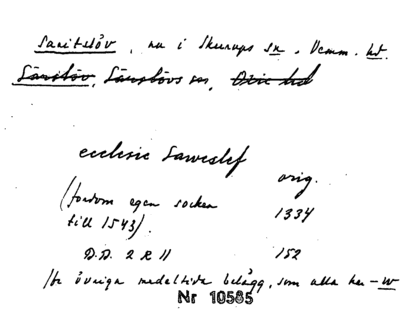 Saritslöv, nu i Skurups sn, Vemm. hd.
Säritslöv, Särslövs sn, Oxie hd
ecclesie Saweslef
orig.
(fordom egen socken 1334
till 1543).
D.D. 2 R II 152
/se övriga medeltida belägg, som alla ha -w
Nr 10585